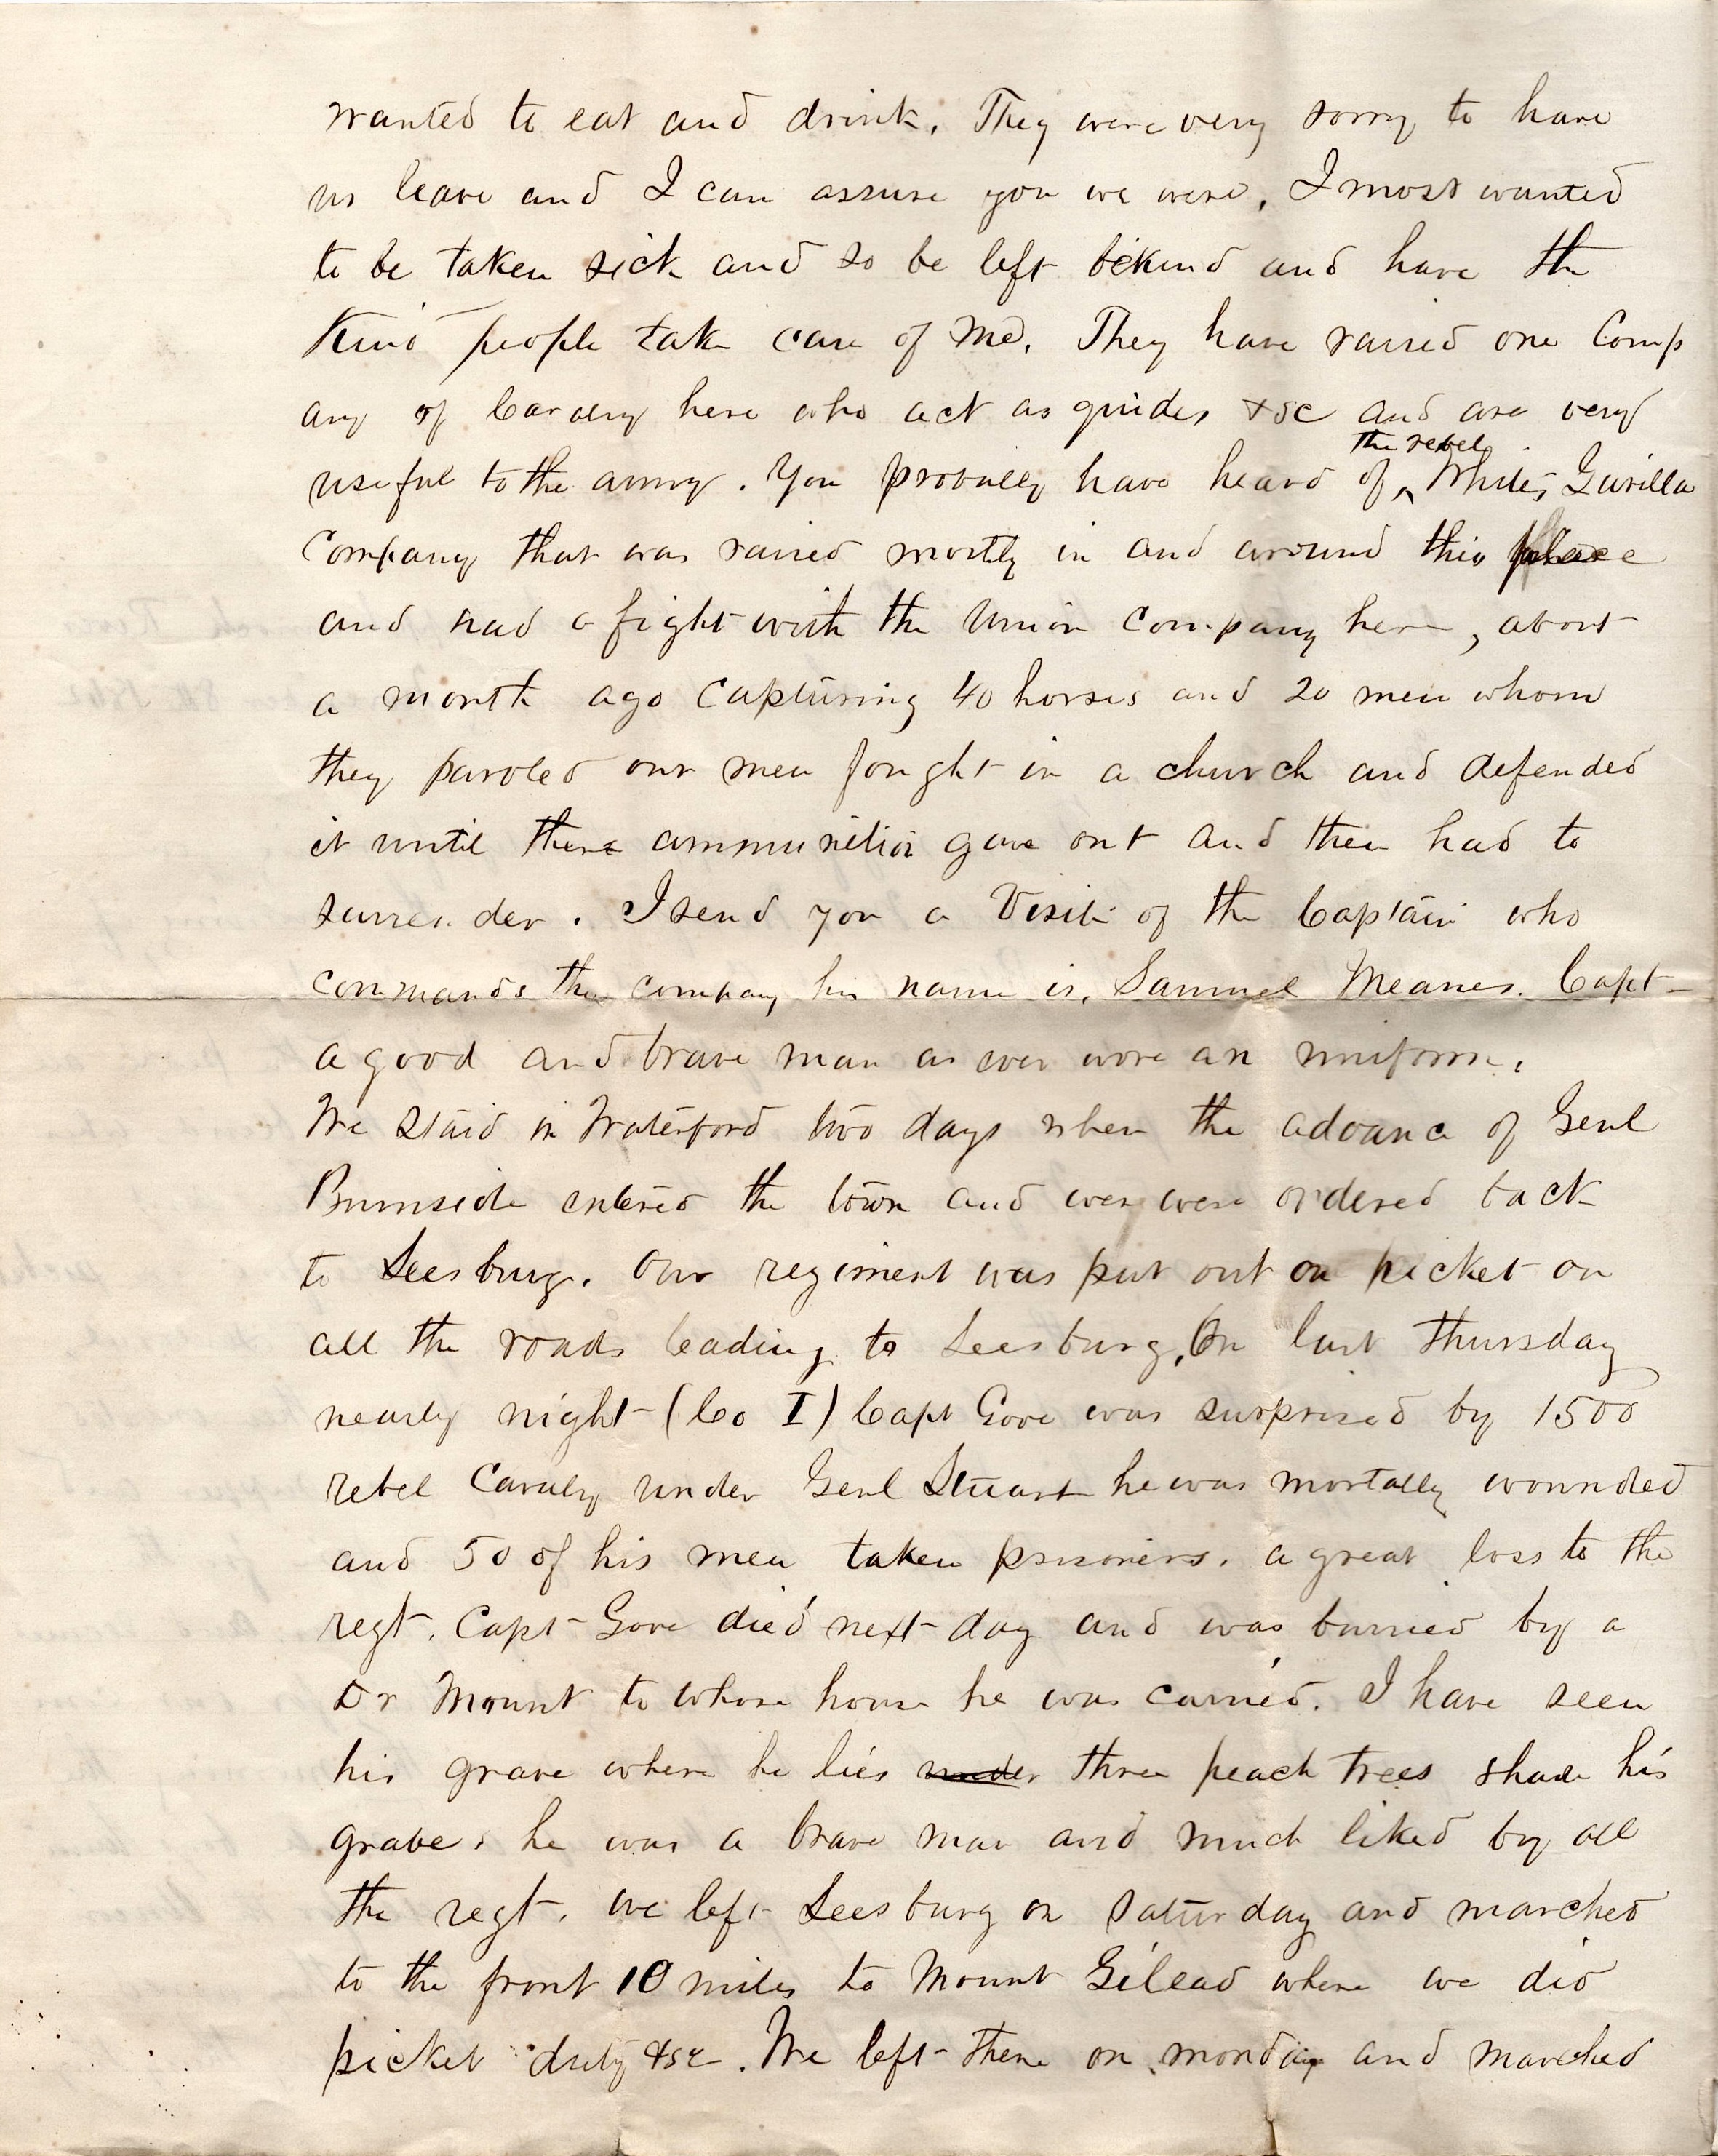 wanted to eat and drink. They were very sorry to have
us leave and I can assure you we were, I most wanted
to be taken sick and so be left behind and have the
kind people take care of me. They have raised one Comp
any of Cavalry here who act as guides &c and are very
the rebel
useful to the army. You probally have heard of ^ Whites Gurilla
Company that was raised mostly in and around this place
and had a fight with the Union Company here, about
a month ago Capturing 40 horses and 20 men whom
they paroled our men fought in a church and defended
it until there ammunition gave out and then had to
surrender. I send you a Visite of the Captain who
commands the company his name is, Samuel Meanes. Capt
a good and brave man as ever wore an uniform.
We staid in Waterford two days when the advance of Genl
Burnside entered the town and wer were ordered back
to Leesburg. Our regiment was put out on picket on
all the roads leading to Leesburg, On last Thursday
nearly night (Co I) Capt Gove was surprised by 1500
rebel Cavalry under Genl Stuart he was mortally wounded
and 50 of his men taken prisoners. a great loss to the
regt. Capt Gove died next day and was burried by a
Dr Mount to whose house he was carried. I have seen
his grave where he lies under three peach trees shade his
grave. he was a brave man and much liked by all
the regt. we left Leesburg on Saturday and marched
to the front 10 miles to Mount Gilead where we did
picket duty &c. We left there on monday and marched